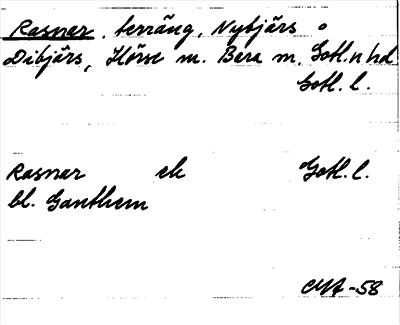 Rasnar, terräng, Nybjärs o
Dibjärs, Hörse m. Bara m. Gotl. n hd
Gotl. l.
Rasnar ek Gotl. l.
bl. Ganthem
CMA -58